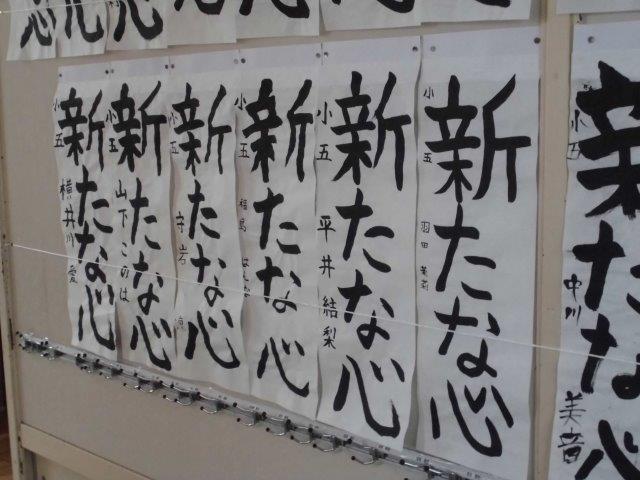 新たな心
小五
中川
美音
新たな心
小五
羽田
新たな心
小五
平井結梨
新たな心
小五
福島 はんな
新たな心
小五
守岩
新たな心
小五
山下このは
新たな心
小五
横井川 愛
心
心